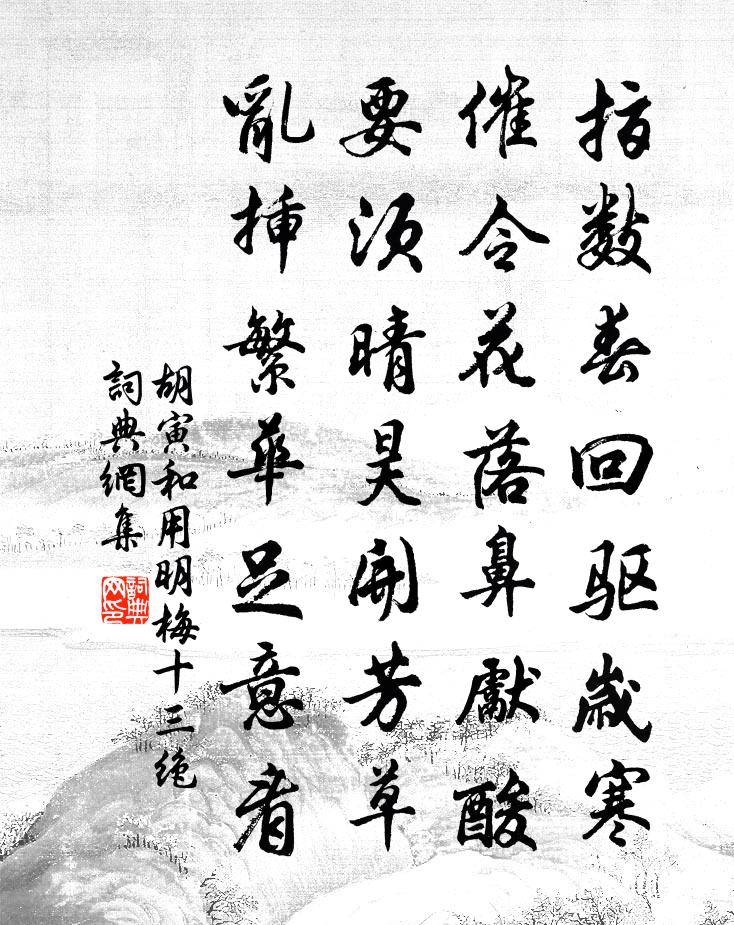 指数春回驱歲寒
催令花落鼻獻酸
要須晴昊開芳草
亂插繁華足意看
胡寅和用明梅十三绝
詞典網集
詞典网印